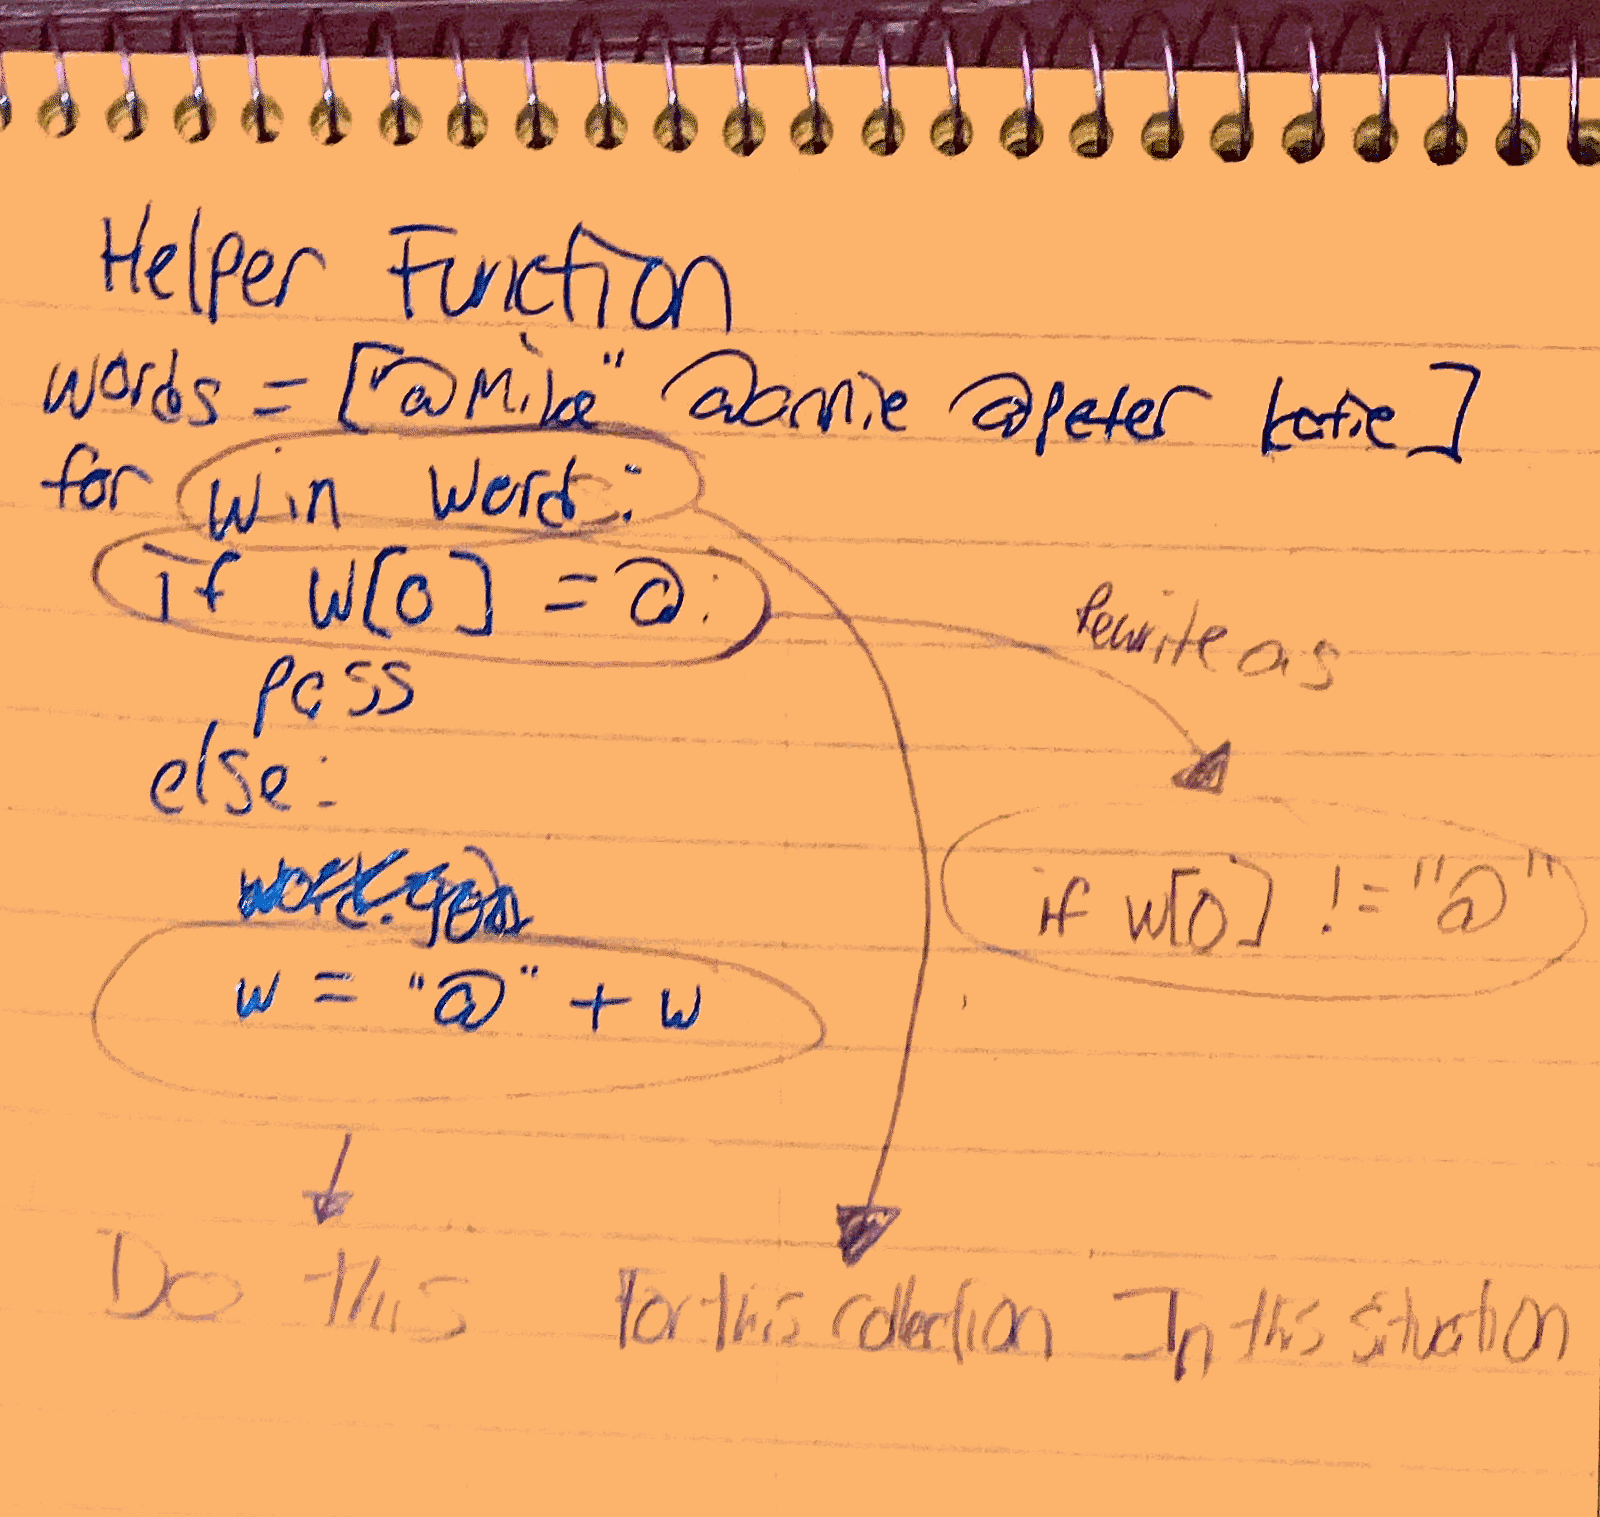 Helper Function
words = ["@Mike" @annie @peter katie]
for w in words:
if w[0] = @:
pass
else:
w = "@" + w
Rewrite as
if w[0] != "@"
Do this For this collection In this situation